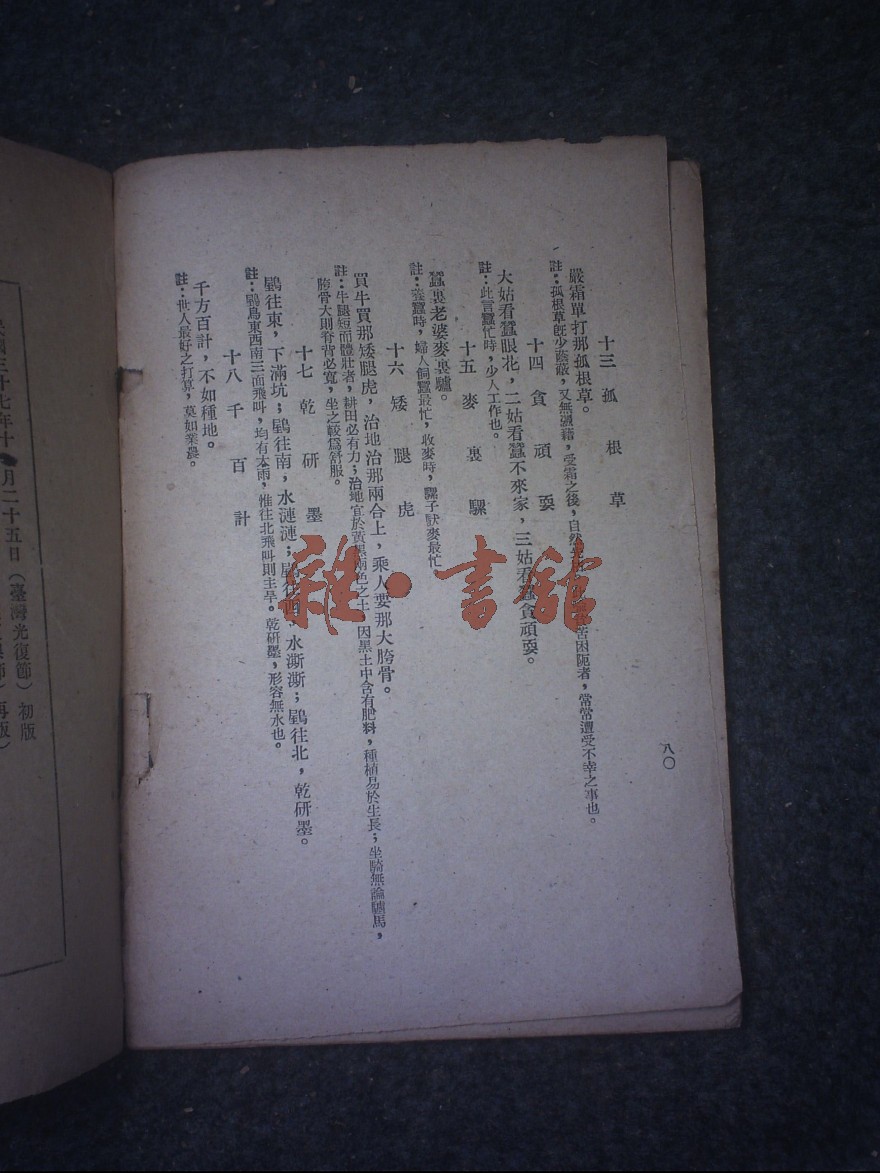 八〇
十三 孤根草
嚴霜單打那孤根草。
註：孤根草旣少蔭蔽，又無蘊藉，受霜之後，自然苦困阨者，常常遭受不幸之事也。
十四 貪頑耍
大姑看蠶眼花，二姑看蠶不來家，三姑看蠶貪頑耍。
註：此言蠶忙時，少人工作也。
十五 麥裏騾
蠶裏老婆麥裏驢。
註：養蠶時，婦人飼蠶最忙，收麥時，騾子馱麥最忙。
十六 矮腿虎
買牛買那矮腿虎，治地治那兩合土，乘人要那大胯骨。
註：牛腿短而體壯者，耕田必有力；治地宜於黃黑兩色之土，因黑土中含有肥料，種植易於生長；坐騎無論驢馬，
胯骨大則脊背必寬，坐之較爲舒服。
十七 乾研墨
鸐往東，下滿坑；鸐往南，水漣漣；鸐往西，水澌澌；鸐往北，乾研墨。
註：鸐鳥東西南三面飛叫，均有大雨，惟往北飛叫則主旱。乾研墨，形容無水也。
十八 千百計
千方百計，不如種地。
註：世人最好之打算，莫如業農。
民國三十七年十月二十五日（臺灣光復節）初版
節）再版
雜·書館